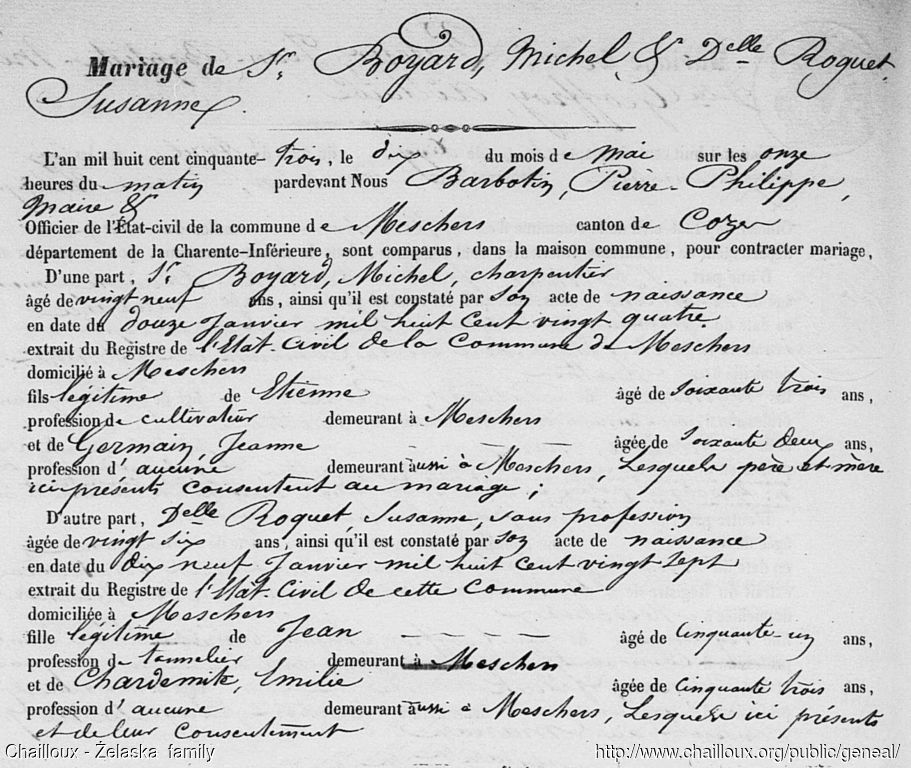 Mariage de Sr. Boyard, Michel, & Delle Roquet,
Susanne.
L'an mil huit cent cinquante-trois, le dix du mois de Mai sur les onze
heures du matin pardevant Nous Barbotin, Pierre-Philippe,
Maire &
Officier de l'État-civil de la commune de Meschers canton de Cozes
département de la Charente-Inférieure, sont comparus, dans la maison commune, pour contracter mariage,
D'une part, Sr. Boyard, Michel, charpentier
âgé de vingt neuf ans, ainsi qu'il est constaté par son acte de naissance
en date du douze Janvier mil huit cent vingt quatre
extrait du Registre de l'Etat-Civil de la Commune de Meschers
domicilié à Meschers
fils légitime de Etienne âgé de soixante trois ans,
profession de cultivateur demeurant à Meschers
et de Germain, Jeanne âgée de soixante deux ans,
profession d'aucune demeurant aussi à Meschers, Lesquels père et mère
ici présents consentent au mariage;
D'autre part, Delle Roquet, Susanne, sans profession
âgée de vingt six ans, ainsi qu'il est constaté par son acte de naissance
en date du dix neuf Janvier mil huit cent vingt sept
extrait du Registre de l'Etat-Civil de cette Commune
domiciliée à Meschers
fille légitime de Jean âgé de cinquante-un ans,
profession de tonnelier demeurant à Meschers
et de Chardemite, Emilie âgée de cinquante trois ans,
profession d'aucune demeurant aussi à Meschers, Lesquels ici présents
et de leur consentement
Chailloux - Żelaska family http://www.chailloux.org/public/geneal/